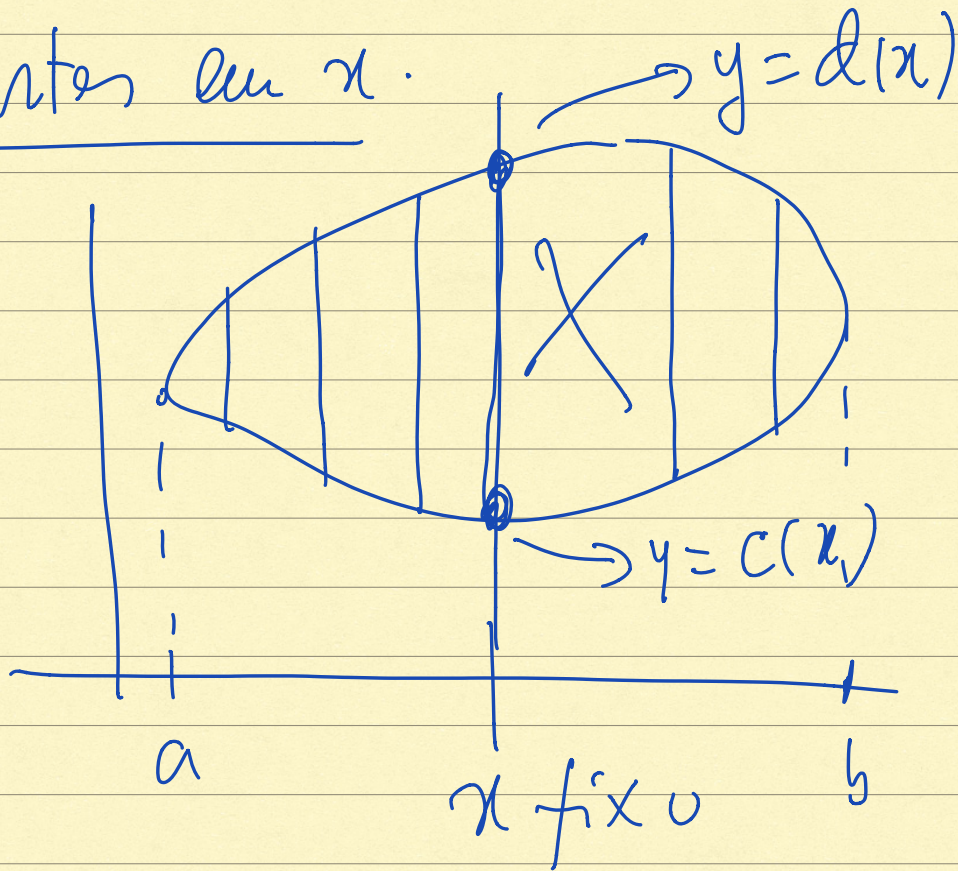 ntes em x.
y = d(x)
X
y = c(x)
a
x fixo
b